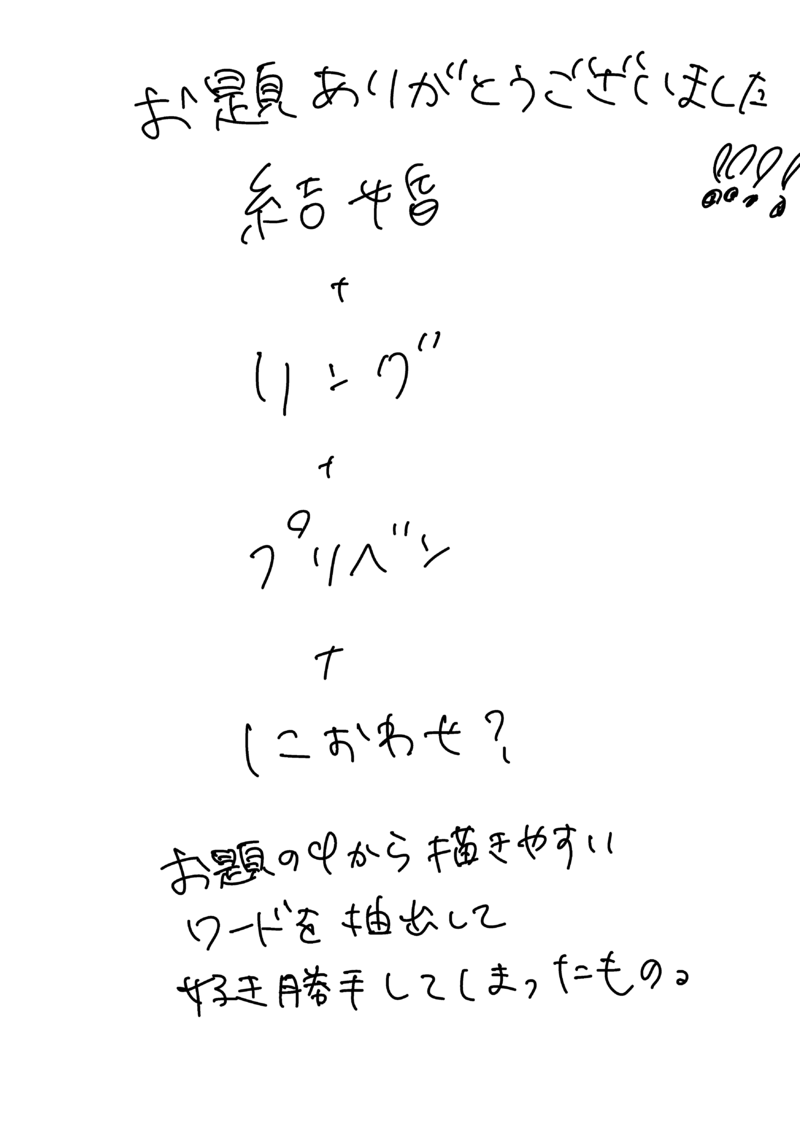 お題ありがとうございました
!!!!
結婚
+
リング
+
プリベン
+
しにおわせ?
お題の中から描きやすい
ワードを抽出して
好き勝手してしまったもの。